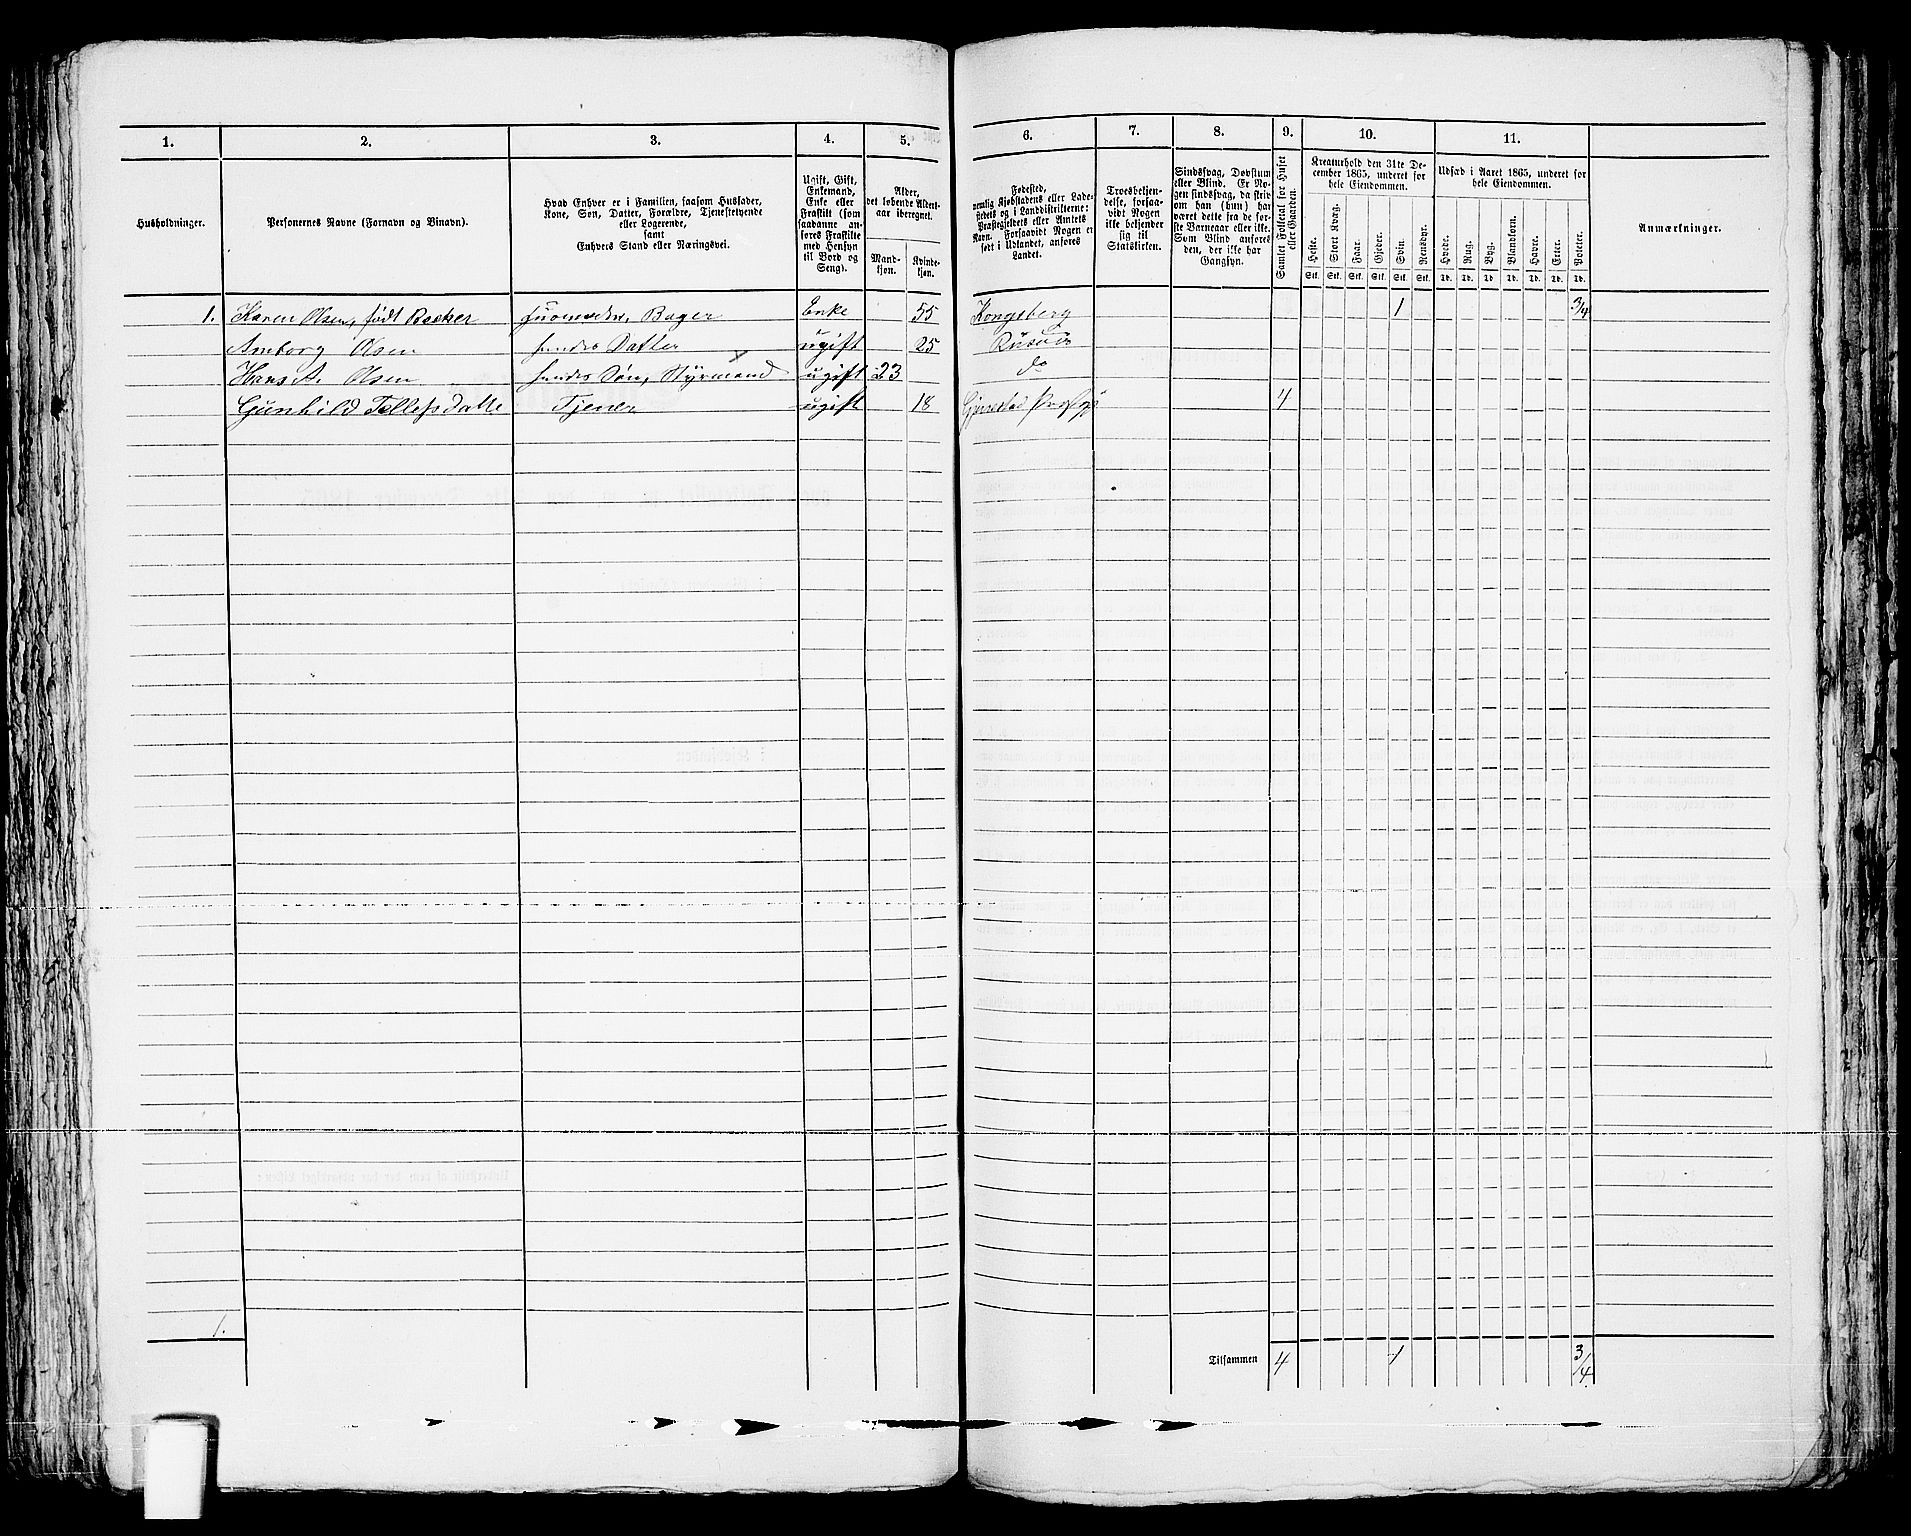 1.
2.
3.
4.
5.
6.
7.
8.
9.
10.
11.
Husholdninger.
Personernes Navne (Fornavn og Binavn).
Hvad Enhver er i Familien, saasom Husfader,
Kone, Søn, Datter, Forældre, Tjenestetyende
eller Logerende,
samt
Enhvers Stand eller Næringsvei.
Ugift, Gift,
Enkemand,
Enke eller
Fraskilt (som
saadanne an-
føres Fraskilte
med Hensyn
til Bord og
Seng).
Alder,
det løbende Alders-
aar iberegnet.
Mand-
kjøn.
Kvinde-
kjøn.
Fødested,
nemlig Kjøbstadens eller Lade-
stedets og i Landdistrikterne:
Præstegjeldets eller Annexets
Navn. Forsaavidt Nogen er
født i Udlandet, anføres
Landet.
Troesbekjen-
delse, forsaa-
vidt Nogen
ikke bekjender
sig til
Statskirken.
Sindssvag, Døvstum
eller Blind. Er No-
gen sindssvag, da skriv
om han (hun) har
været dette fra de for-
ste Barneaar eller ikke.
Som Blind anføres
den, der ikke har
Gangsyn.
Samlet Folketal for Huset
eller Gaarden.
Kreaturhold den 31te De-
cember 1865, underet for
hele Eiendommen.
Heste.
Stort Kvæg.
Faar.
Gjeder.
Svin.
Rensdyr.
Stk. Stk. Stk. Stk. Stk. Stk.
Udsæd i Aaret 1865, underet for
hele Eiendommen.
Hvede.
Rug.
Byg.
Blandkorn.
Havre.
Erter.
Poteter.
Td. Td. Td. Td. Td. Td. Td.
Anmærkninger.
1. Karen Olsen, født Backer Huusmoder, Bager Enke 55 Kongsberg 1 3/4
Amborg Olsen hendes Datter ugift 25 Risøer
Hans A. Olsen hendes Søn, Styrmand ugift 23 do
Gunhild Tellefsdatte Tjener ugift 18 Gjerestad 4
1.
Tilsammen 4 1 3/4